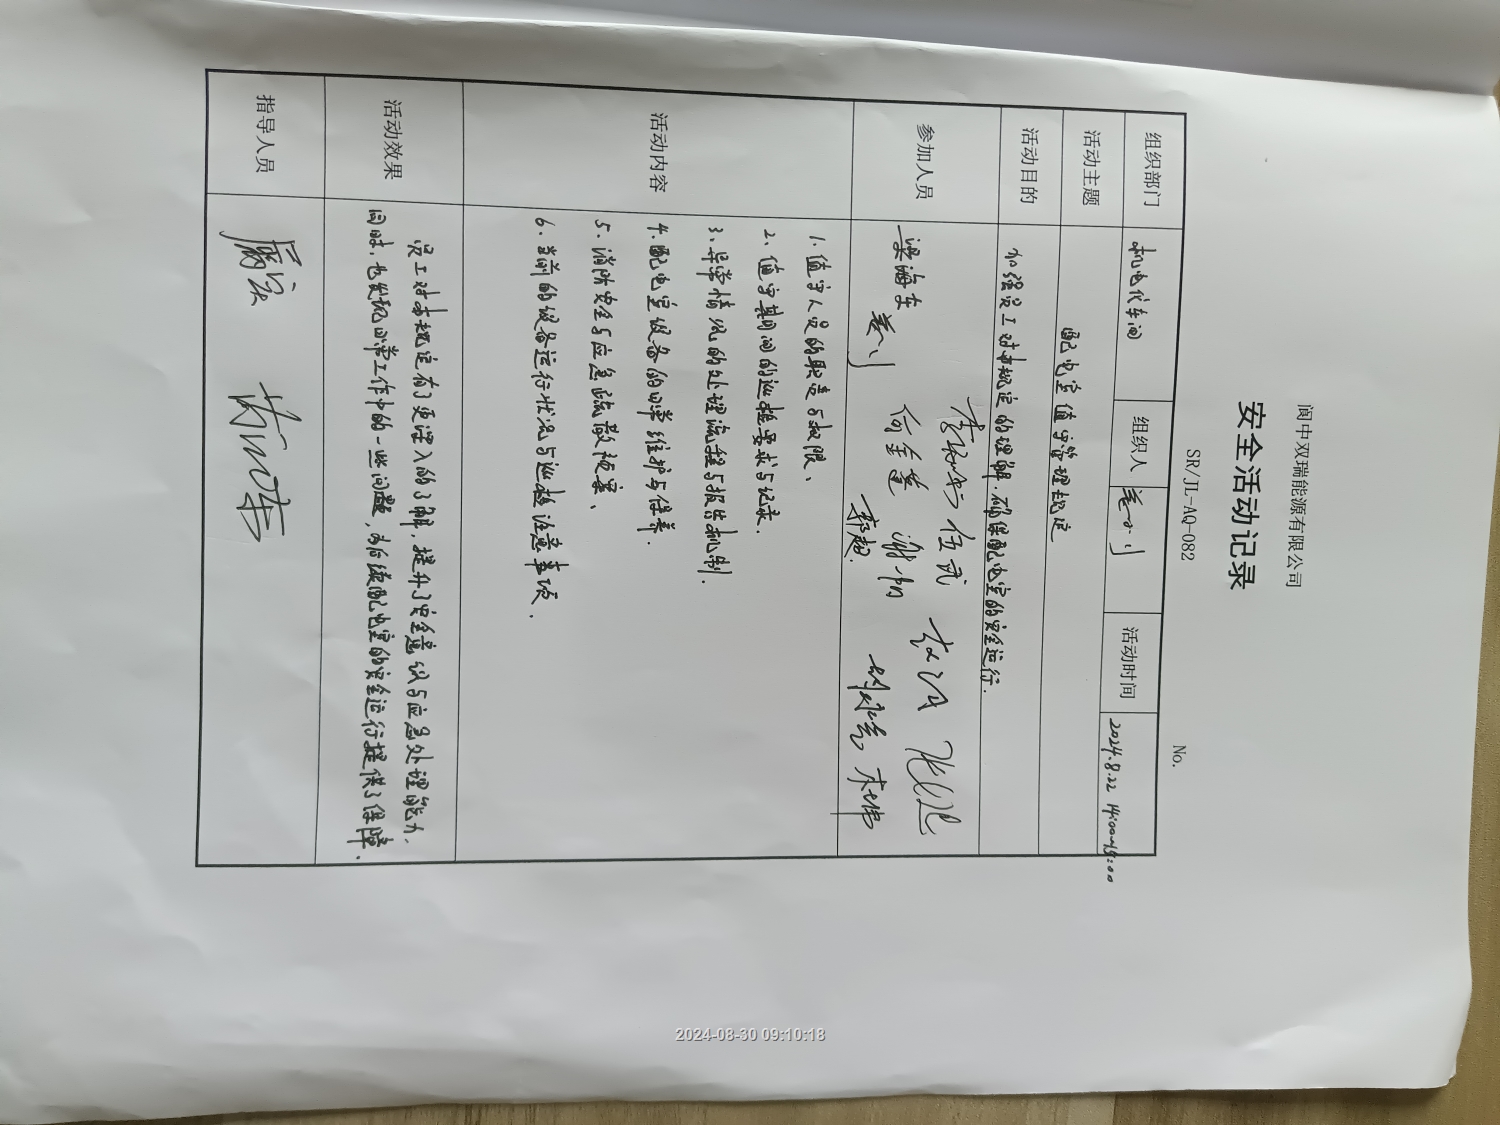 阆中双瑞能源有限公司
安全活动记录
SR/JL-AQ-082
No.
组织部门 机电仪车间 组织人 活动时间 2024.8.22 14:00~15:00
活动主题 配电室值守管理规定
活动目的 加强员工对本规定的理解,确保配电室的安全运行.
参加人员
梁海东 伍武
何全莲
郭超.
活动内容
1. 值守人员的职责与权限、
2. 值守期间的巡检要求与记录.
3. 异常情况的处理流程与报告机制.
4. 配电室设备的日常维护与保养.
5. 消防安全与应急疏散预案、
6. 当前的设备运行状况与巡检注意事项.
活动效果
员工对本规定有了更深入的了解,提升了安全意识与应急处理能力,
同时,也发现日常工作中的一些问题,为后续配电室的安全运行提供了保障.
指导人员
2024-08-30 09:10:18